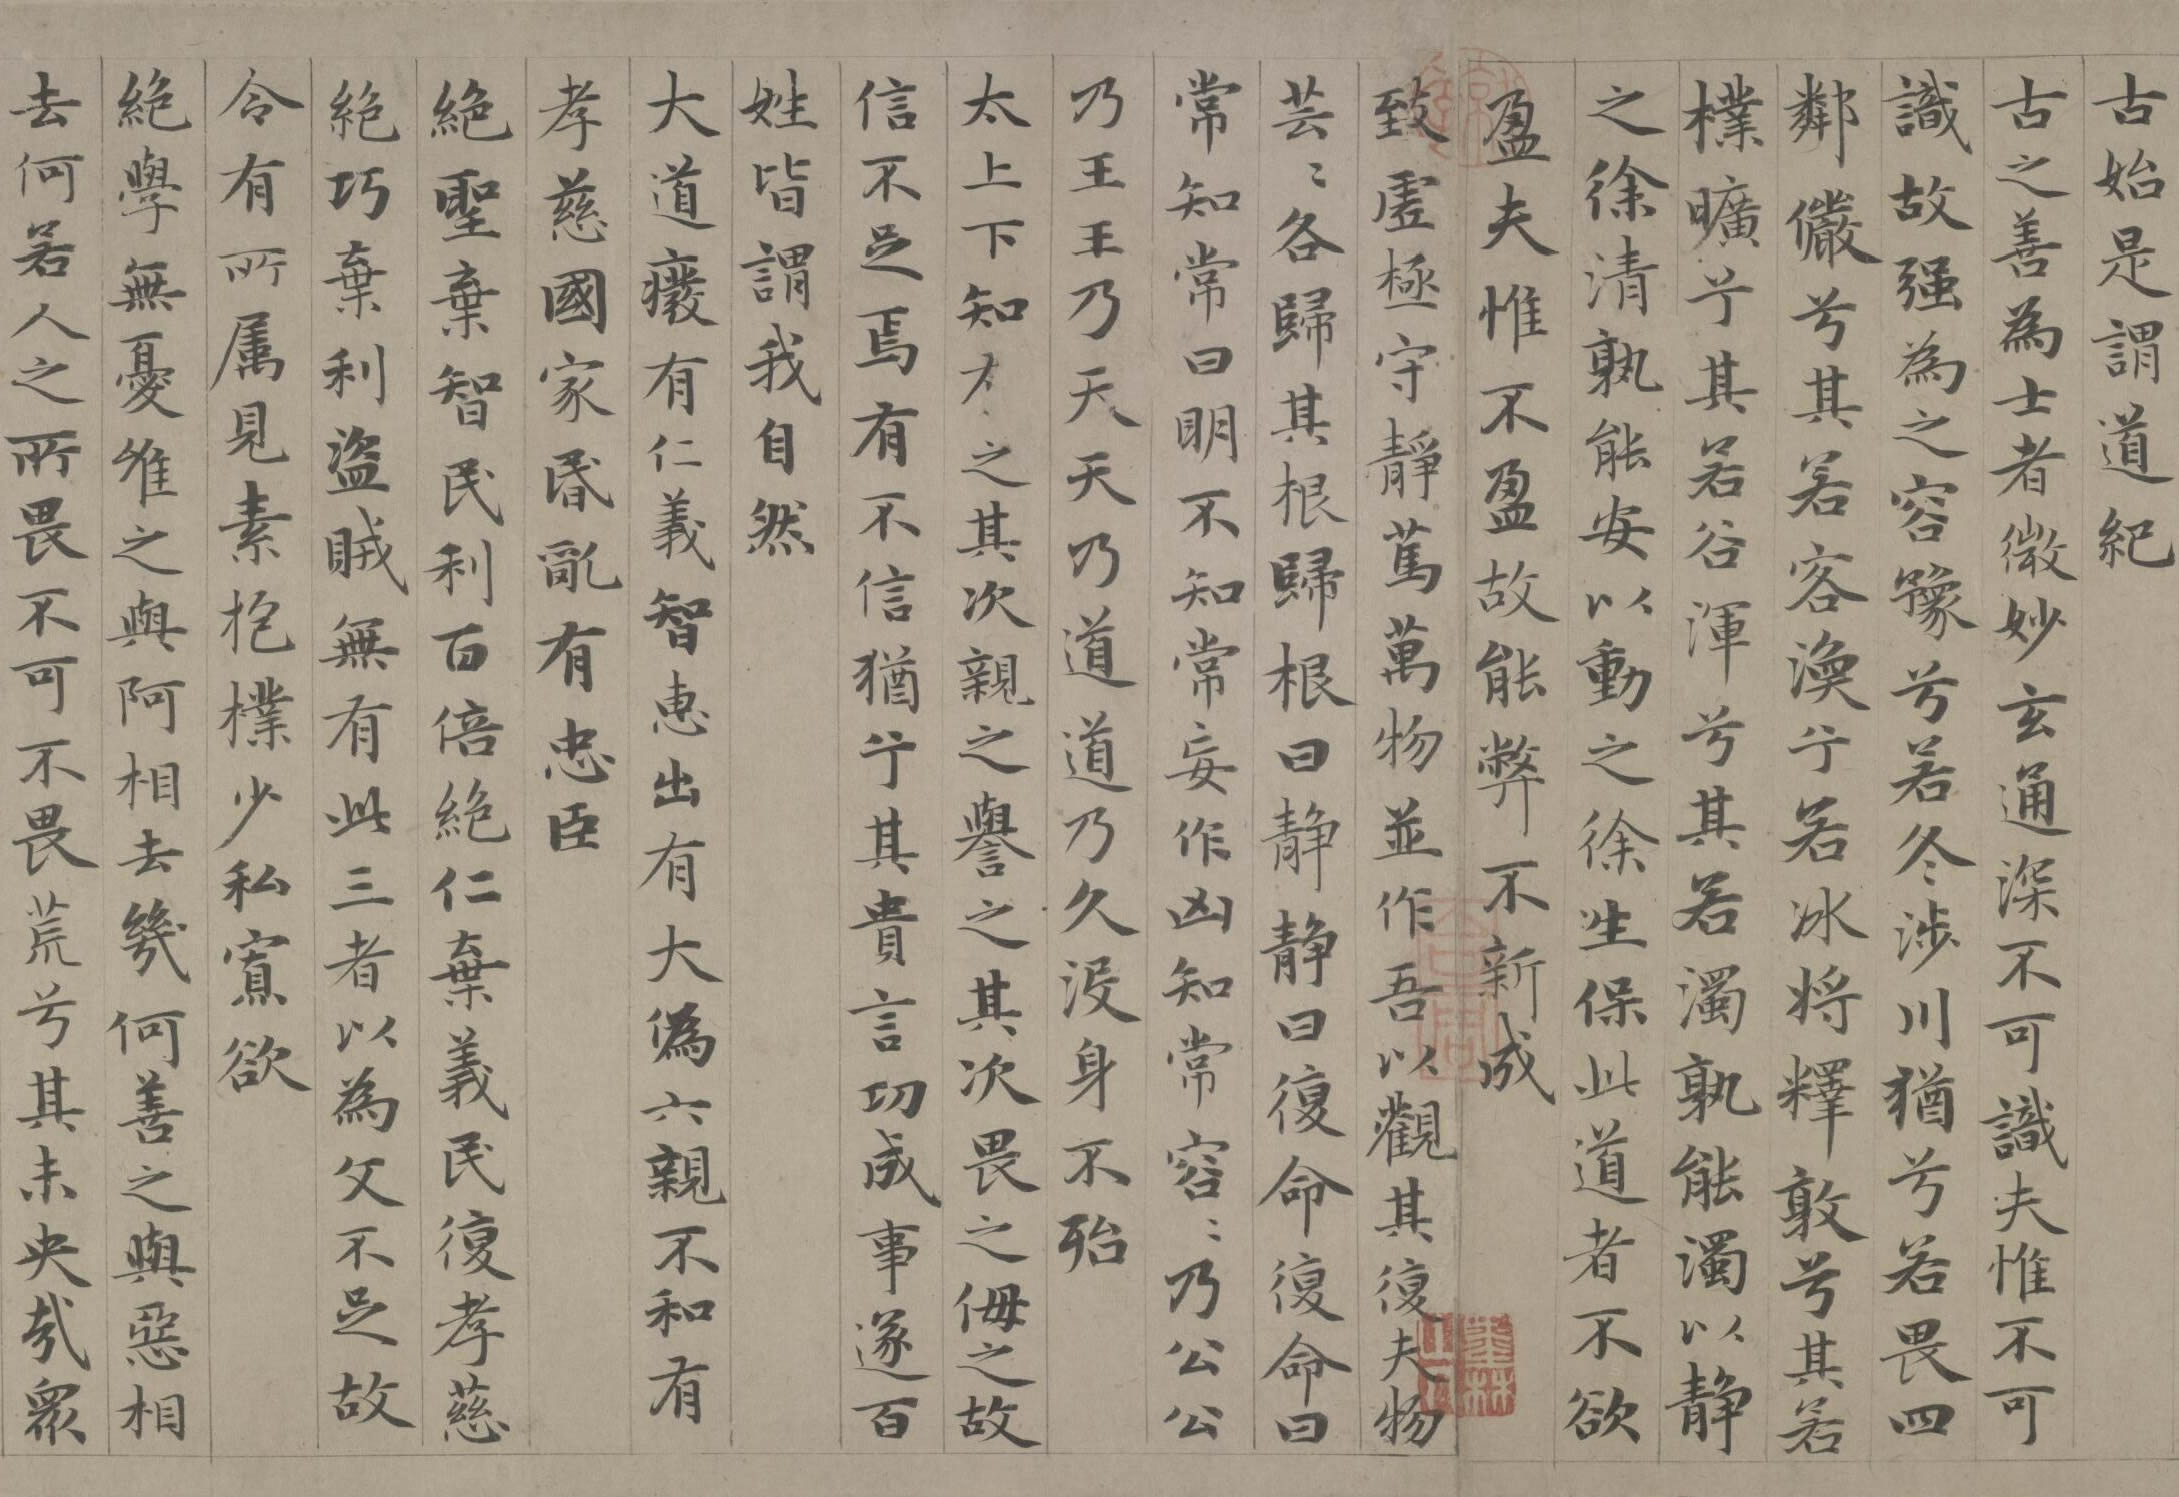 古始是謂道紀
古之善為士者微妙玄通深不可識夫惟不可
識故强為之容豫兮若冬涉川猶兮若畏四
鄰儼兮其若客渙兮若冰將釋敦兮其若
樸曠兮其若谷渾兮其若濁孰能濁以静
之徐清孰能安以動之徐生保此道者不欲
盈夫惟不盈故能弊不新成
致虛極守靜篤萬物並作吾以觀其復夫物
芸〻各歸其根歸根曰静静曰復命復命曰
常知常曰明不知常妄作凶知常容〻乃公公
乃王王乃天天乃道道乃久没身不殆
太上下知之其次親之譽之其次畏之侮之故
信不足焉有不信猶兮其貴言功成事遂百
姓皆謂我自然
大道癈有仁義智惠出有大偽六親不和有
孝慈國家昬亂有忠臣
絶聖棄智民利百倍絶仁棄義民復孝慈
絶巧棄利盗賊無有此三者以為文不足故
令有所属見素抱樸少私寡欲
絶學無憂唯之與阿相去幾何善之與惡相
去何若人之所畏不可不畏荒兮其未央哉眾